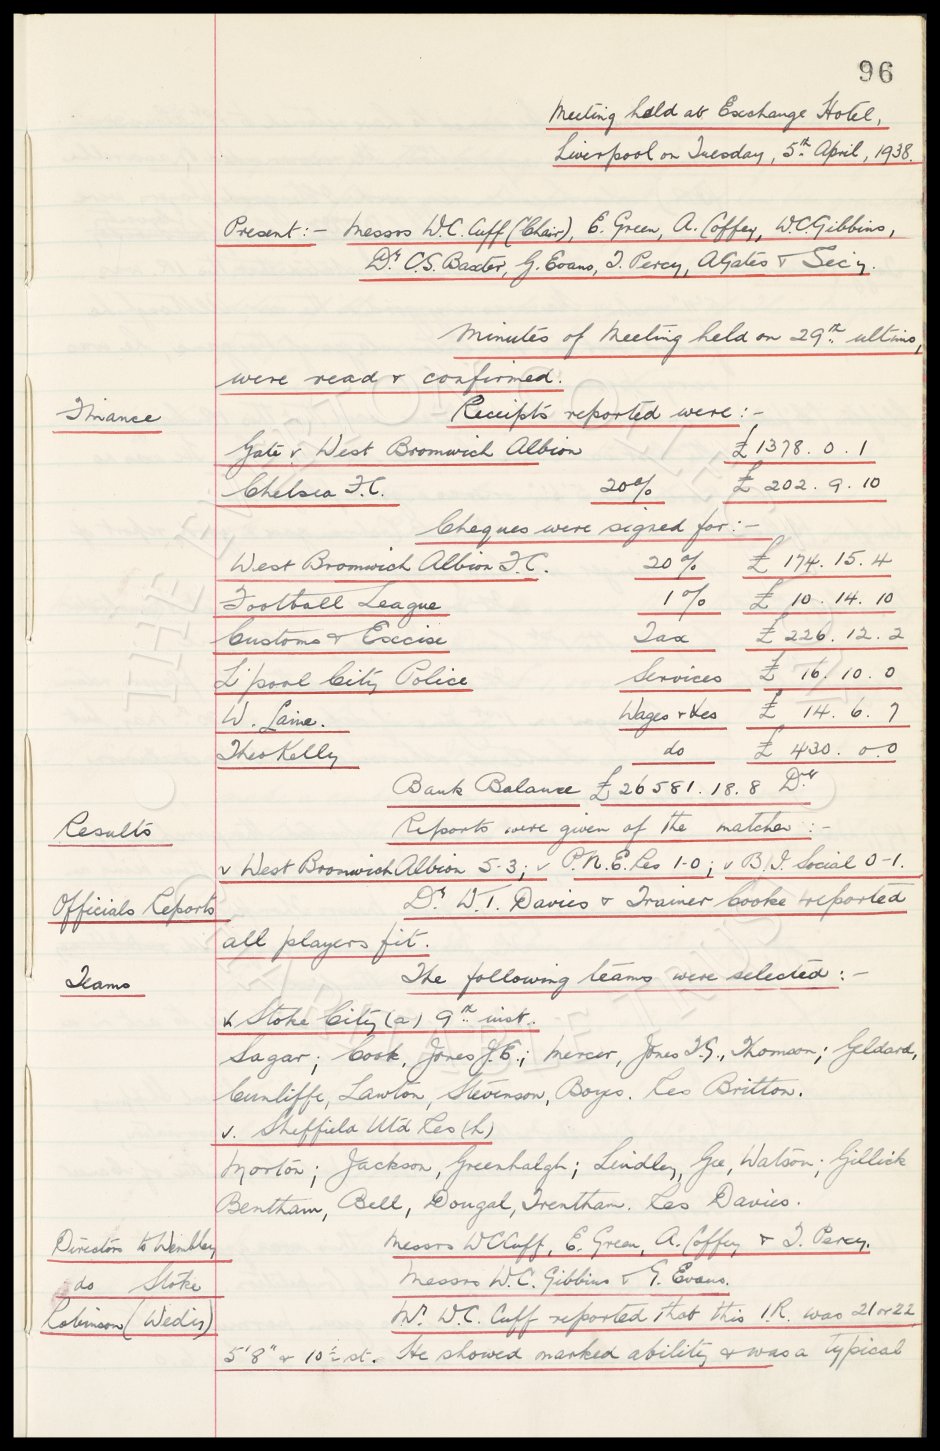 96
Meeting held at Exchange Hotel,
Liverpool on Tuesday, 5th April, 1938.
Present:- Messrs W.C. Cuff (Chair), E. Green, A. Coffey, W.C. Gibbins,
Dr. C.S. Baxter, G. Evans, T. Percy, A Gates & Sec'y.
Minutes of Meeting held on 29th ultimo,
were read & confirmed.
Finance Receipts reported were:-
Gate v West Bromwich Albion £1378. 0. 1
Chelsea F.C. 20% £ 202. 9. 10
Cheques were signed for:-
West Bromwich Albion F.C. 20% £ 174. 15. 4
Football League 1% £ 10. 14. 10
Customs & Excise Tax £ 226. 12. 2
L'pool City Police Services £ 16. 10. 0
W. Laine. Wages & Xes £ 14. 6. 7
Theo Kelly do £ 430. 0. 0
Bank Balance £26581. 18. 8 Dr
Results Reports were given of the matches:-
v West Bromwich Albion 5-3; v P.N.E. Res 1-0; v B.I. Social 0-1.
Officials Reports Dr. W.T. Davies & Trainer Cooke reported
all players fit.
Teams The following teams were selected:-
v Stoke City (a) 9th inst.
Sagar; Cook, Jones J.E.; Mercer, Jones T.G., Thomson; Geldard,
Cunliffe, Lawton, Stevenson, Boyes. Res Britton.
v. Sheffield Utd Res (h)
Morton; Jackson, Greenhalgh; Lindley, Gee, Watson; Gillick
Bentham, Bell, Dougal, Trentham. Res Davies.
Directors to Wembley Messrs W C Cuff, E. Green, A. Coffey & T. Percy.
do Stoke Messrs W.C. Gibbins & G. Evans.
Robinson (Wedns) Mr. W.C. Cuff reported that this I.R. was 21 or 22
5'8" & 10 st. He showed marked ability & was a typical
THE EVERTON FOOTBALL CLUB